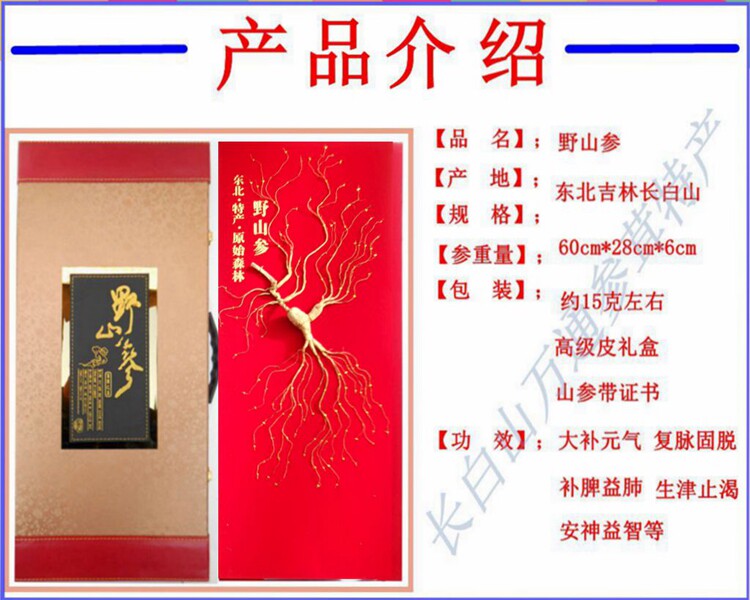 产品介绍
【品 名】；野山参
【产 地】；东北吉林长白山
【规 格】；60cm*28cm*6cm
【参重量】；约15克左右
【包 装】；高级皮礼盒
山参带证书
【功 效】；大补元气 复脉固脱
补脾益肺 生津止渴
安神益智等
东北·特产·原始森林
野山参
野山参
长白山万通参茸特产